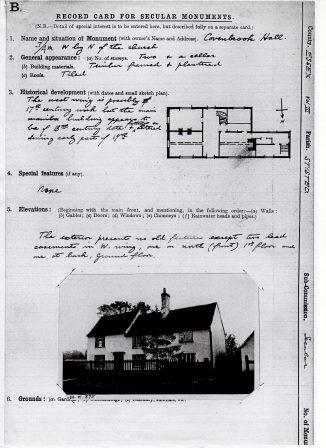 B.
RECORD CARD FOR SECULAR MONUMENTS.
(N.B.—Detail of special interest is to be entered here, but described fully on a separate card.)
1. Name and situation of Monument (with owner's Name and Address). Covenbrook Hall.
3/4 m W by N of the church
2. General appearance: (a) No. of storeys. Two & a cellar
(b) Building materials. Timber framed & plastered
(c) Roofs. Tiled
3. Historical development (with dates and small sketch plan).
The west wing is possibly of
17th century work but the main
building appears to
be of 18th century date & altered
during early part of 19th.
4. Special features (if any).
None
5. Elevations: (Beginning with the main front, and mentioning, in the following order:—(a) Walls:
(b) Gables; (c) Doors; (d) Windows; (e) Chimneys; (f) Rainwater heads and pipes.)
The exterior presents no old features except two lead
casements in W. wing, one on north (front) 1st floor and
one at back, ground floor.
6. Grounds: (a) Garden
County. ESSEX
Vol. III
Parish. STISTED
Sub-Commission. Secular
No. of Monu